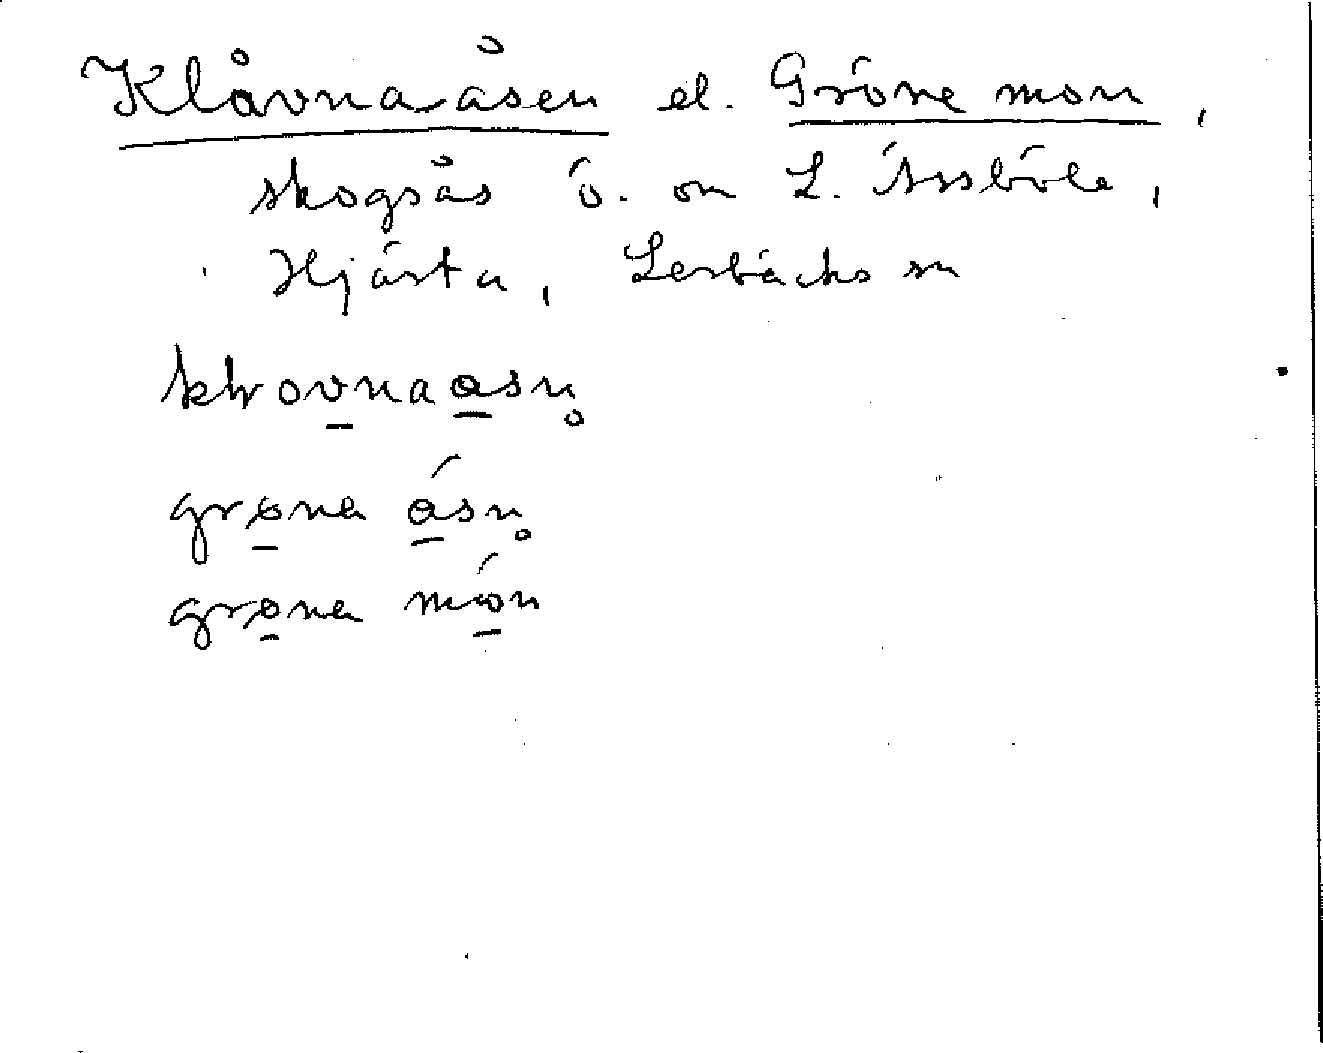 Klåvna-åsen el. Gröne mon,
skogsås ö. om L. Åssböle,
Hjärta, Lerbäcks sn
klovnaåsn̥
grøna ásn̥
grøna món